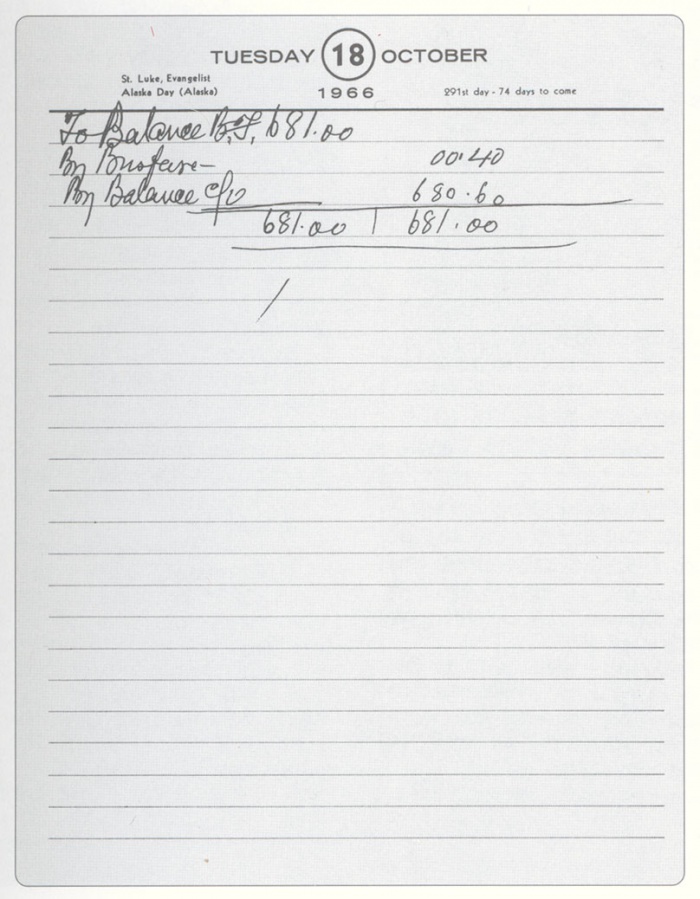 TUESDAY 18 OCTOBER
St. Luke, Evangelist
Alaska Day (Alaska)
1966
291st day - 74 days to come
To Balance B.F. 681.00
By Busfare— 00.40
By Balance c/o 680.60
681.00 | 681.00